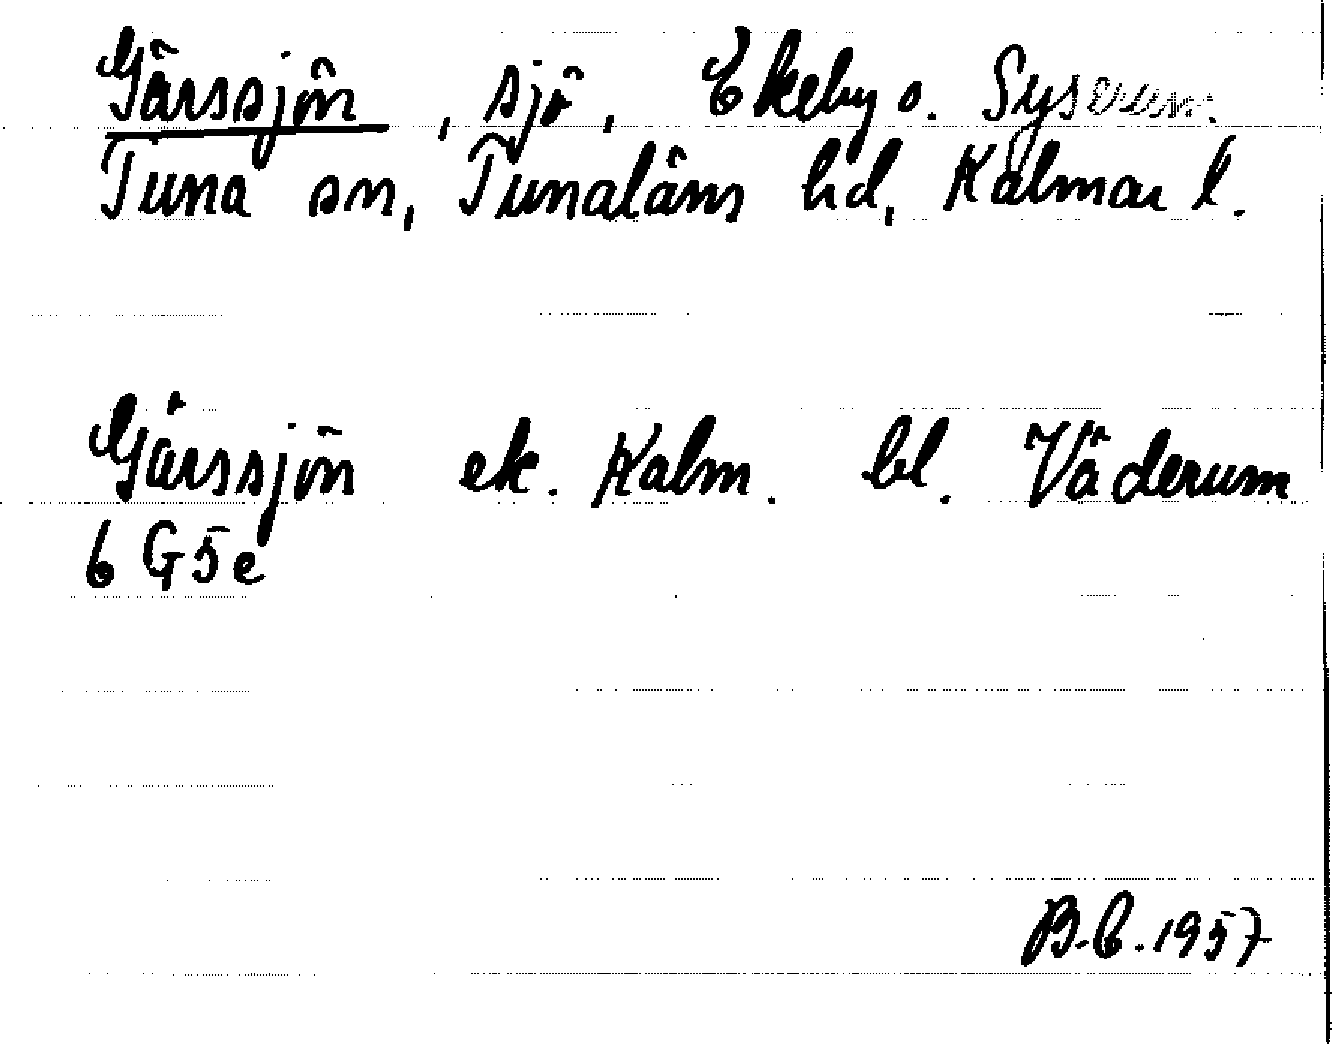 Gårssjön, sjö, Ekeby o. Syserum.
Tuna sn, Tunaläns hd, Kalmar l.
Gårssjön ek. Kalm. bl. Väderum
6 G5e
B.C. 1957